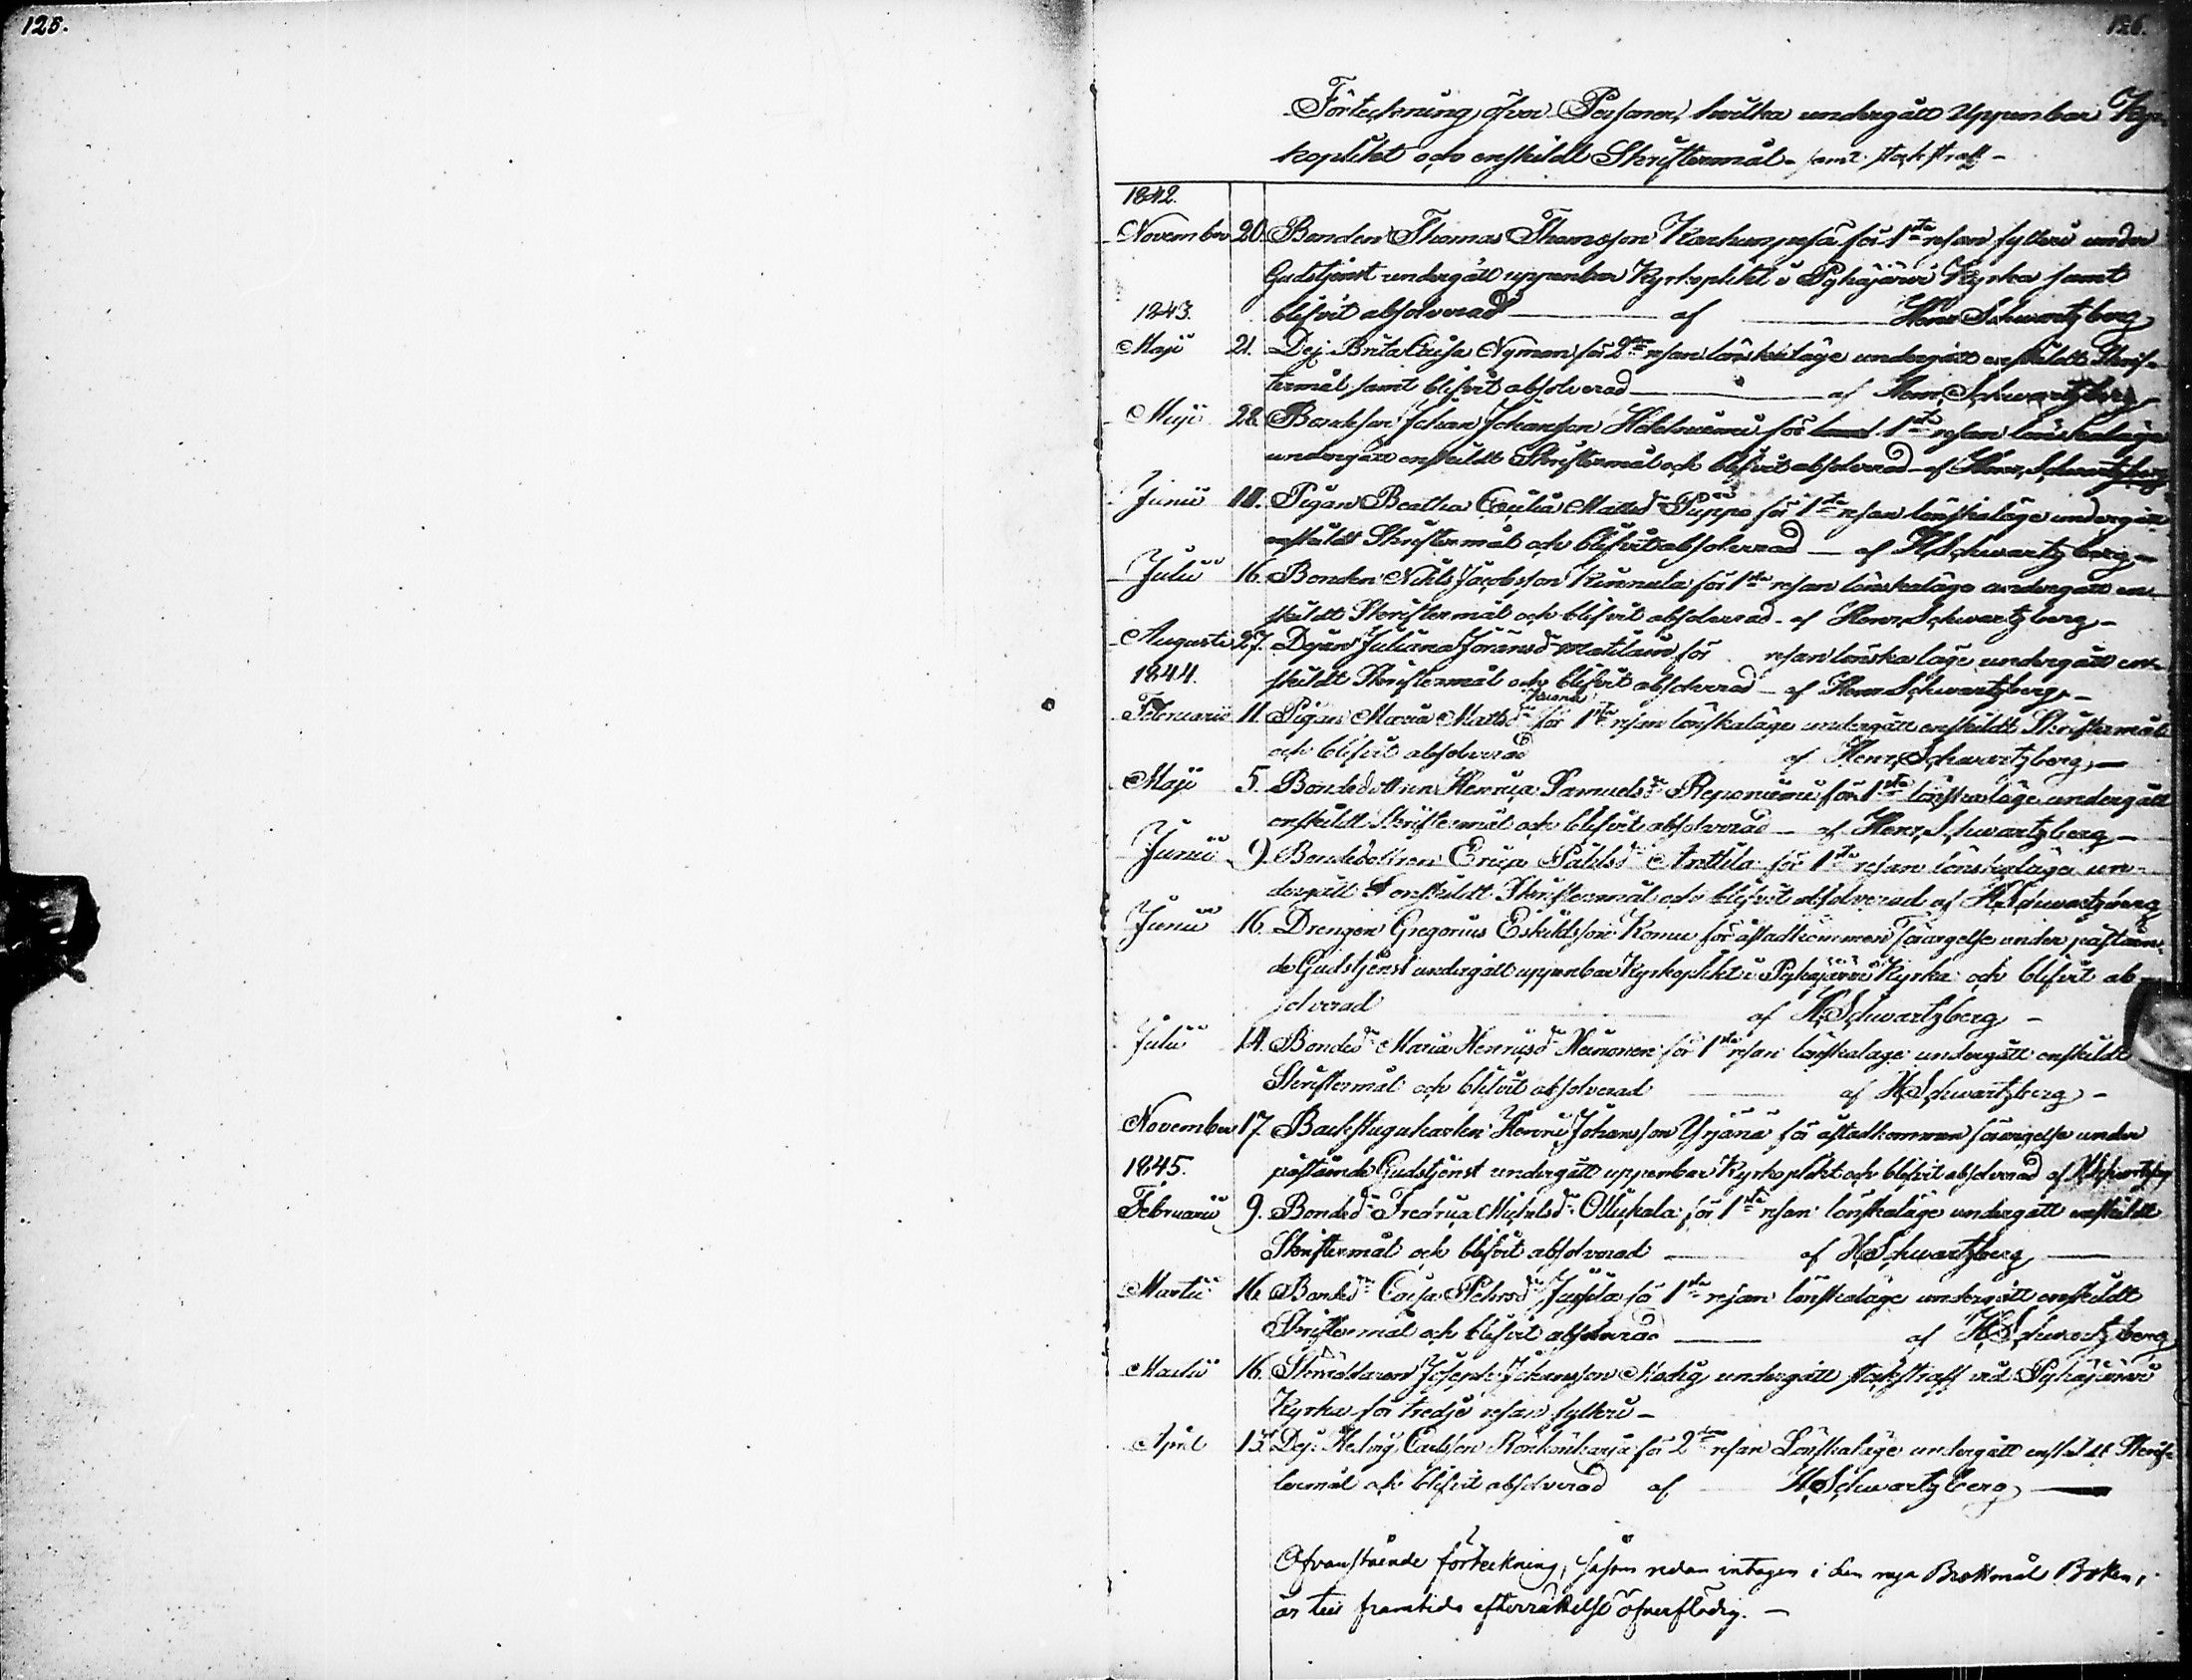 125.
126.
Förteckning öfver Personer, hvilka undergått Uppenbar Kyr-
koplikt och enskildt Skriftermål samt stockstraff -
1842.
November 20. Bonden Thomas Thomasson Karhunpesä för 1sta resan fylleri under
Gudstjenst undergått uppenbar Kyrkoplikt i Pyhäjärvi Kyrka samt
1843. blifvit absolverad af Henr Schwartzberg
Maji 21. Dej. Brita Caisa Nyman för 2dra resan lönskaläge undergått enskildt Skrif-
termål samt blifvit absolverad af Henr Schwartzberg
Maji 28. Bondeson Johan Johansson för 1sta resan lönskaläge
undergått enskildt Skriftermål och blifvit absolverad af Henr Schwartzberg
Junii Pigan Beatha Cecilia Mattsdr Piippo för 1sta resan lönskaläge undergått
enskildt Skriftermål och blifvit absolverad - af H Schwartzberg -
Julii 16. Bonden Nikls Jacobsson Kinnula för 1sta resan lönskaläge undergått en-
skildt Skriftermål och blifvit absolverad - af Henr Schwartzberg -
Augusti 27. Dejan Juliana Jöransdr Matilain för resan lönskaläge undergått en-
1844. skildt Skriftermål och blifvit absolverad - af Henr Schwartzberg -
Februarii 11. Pigan Maria Mattsdr för 1sta resan lönskaläge undergått enskildt Skriftermål
och blifvit absolverad af Henr Schwartzberg -
Maji 5. Bondedottren Henrica Samuelsdr Reponiemi för 1sta lönskaläge undergått
enskildt Skriftermål och blifvit absolverad - af Henr Schwartzberg -
Junii 9. Bondedottren Erica Påhlsdr Anttila för 1sta resan lönskaläge un-
dergått enskildt Skriftermål och blifvit absolverad af H Schwartzberg
Junii 16. Drengen Gregorius Eskildsson Komu för åstadkommen förargelse under påståen-
de Gudstjenst undergått uppenbar Kyrkoplikt i Pyhäjärvi Kyrka och blifvit ab-
solverad af H Schwartzberg -
Julii 14. Bondedr Maria Henricsdr Heinonen för 1sta resan lönskaläge undergått enskildt
Skriftermål och blifvit absolverad af H Schwartzberg -
November 17. Backstugukarlen Henric Johansson Yrjänä för åstadkommen förargelse under
1845. påstående Gudstjenst undergått uppenbar Kyrkoplikt och blifvit absolverad af H Schwartzberg
Februarii 9. Bondedr Fredrica Michelsdr Olliskala för 1sta resan lönskaläge undergått enskildt
Skriftermål och blifvit absolverad af H Schwartzberg
Martii 16. Bondedr Caisa Pehrsdr för 1sta resan lönskaläge undergått enskildt
Skriftermål och blifvit absolverad af H Schwartzberg
Martii 16. Skräddaren Joseph Johansson Modig undergått stockstraff vid Pyhäjärvi
Kyrka för tredje resan fylleri -
April 13. Dej. Hedvig Carlsson för 2dra resan Lönskaläge undergått enskildt Skrif-
termål och blifvit absolverad af H Schwartzberg
Ofvanstående förteckning, såsom redan intagen i den nya Brottmål Boken,
är till framtida efterrättelse öfverflödig. -